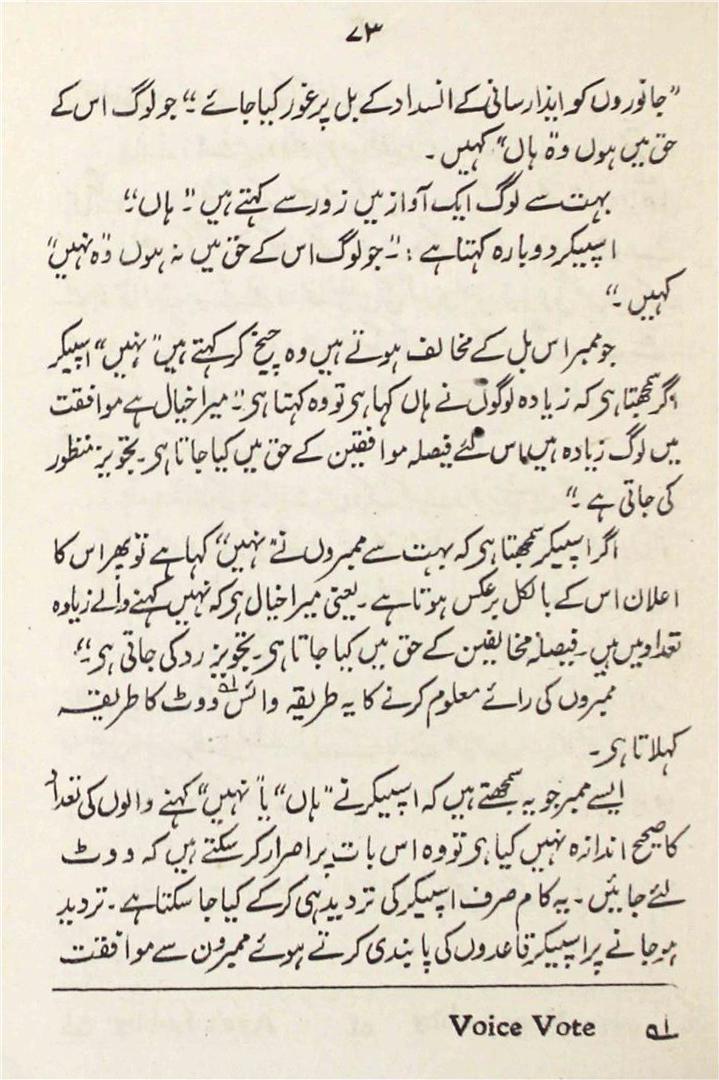 ۷۳
"جانوروں کو ایذا رسانی کے انسداد کے بل پر غور کیا جائے"۔ جو لوگ اس کے
حق میں ہوں وہ "ہاں" کہیں۔
بہت سے لوگ ایک آواز میں زور سے کہتے ہیں "۔ ہاں"۔
اسپیکر دوبارہ کہتا ہے :"۔ جو لوگ اس کے حق میں نہ ہوں وہ "نہیں"
کہیں۔"
جو ممبر اس بل کے مخالف ہوتے ہیں وہ چیخ کر کہتے ہیں "نہیں" اسپیکر
اگر سمجھتا ہی کہ زیادہ لوگوں نے ہاں کہا ہی تو وہ کہتا ہی "۔ میرا خیال ہے موافقت
میں لوگ زیادہ ہیں اس لئے فیصلہ موافقین کے حق میں کیا جاتا ہی۔ تجویز منظور
کی جاتی ہے۔"
اگر اسپیکر سمجھتا ہی کہ بہت سے ممبروں نے "نہیں" کہا ہے تو پھر اس کا
اعلان اس کے بالکل برعکس ہوتا ہے۔ یعنی میرا خیال ہی کہ نہیں کہنے والے زیادہ
تعداد میں ہیں۔ فیصلہ مخالفین کے حق میں کیا جاتا ہی۔ تجویز رد کی جاتی ہی۔"
ممبروں کی رائے معلوم کرنے کا یہ طریقہ وائس ووٹ۱؎ کا طریقہ
کہلاتا ہی۔
ایسے ممبر جو یہ سمجھتے ہیں کہ اسپیکر نے "ہاں" یا "نہیں" کہنے والوں کی تعداد
کا صحیح اندازہ نہیں کیا ہی تو وہ اس بات پر اصرار کر سکتے ہیں کہ ووٹ
لئے جائیں۔ یہ کام صرف اسپیکر کی تردید ہی کر کے کیا جا سکتا ہے۔ تردید
ہو جانے پر اسپیکر قاعدوں کی پابندی کرتے ہوئے ممبرون سے موافقت
۱؎ Voice Vote